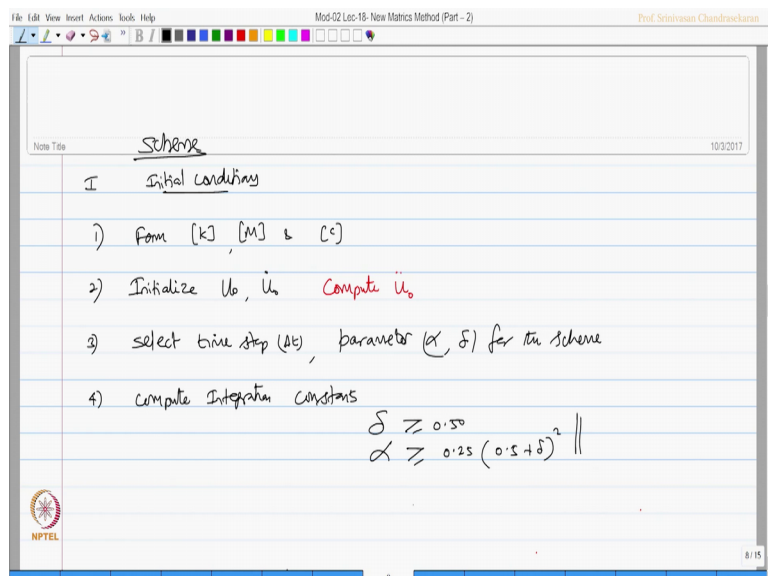 File Edit View Insert Actions Tools Help
Mod-02 Lec-18- New Matrics Method (Part – 2)
Prof. Srinivasan Chandrasekaran
B I
Note Title
10/3/2017
Scheme
I Initial conditions
1) Form [K], [M] & [C]
2) Initialize U₀, U̇₀ Compute Ü₀
3) select time step (Δt), parameter (α, δ) for the scheme
4) compute Integration constants
δ ≥ 0.50
α ≥ 0.25 (0.5 + δ)²
NPTEL
8 / 15